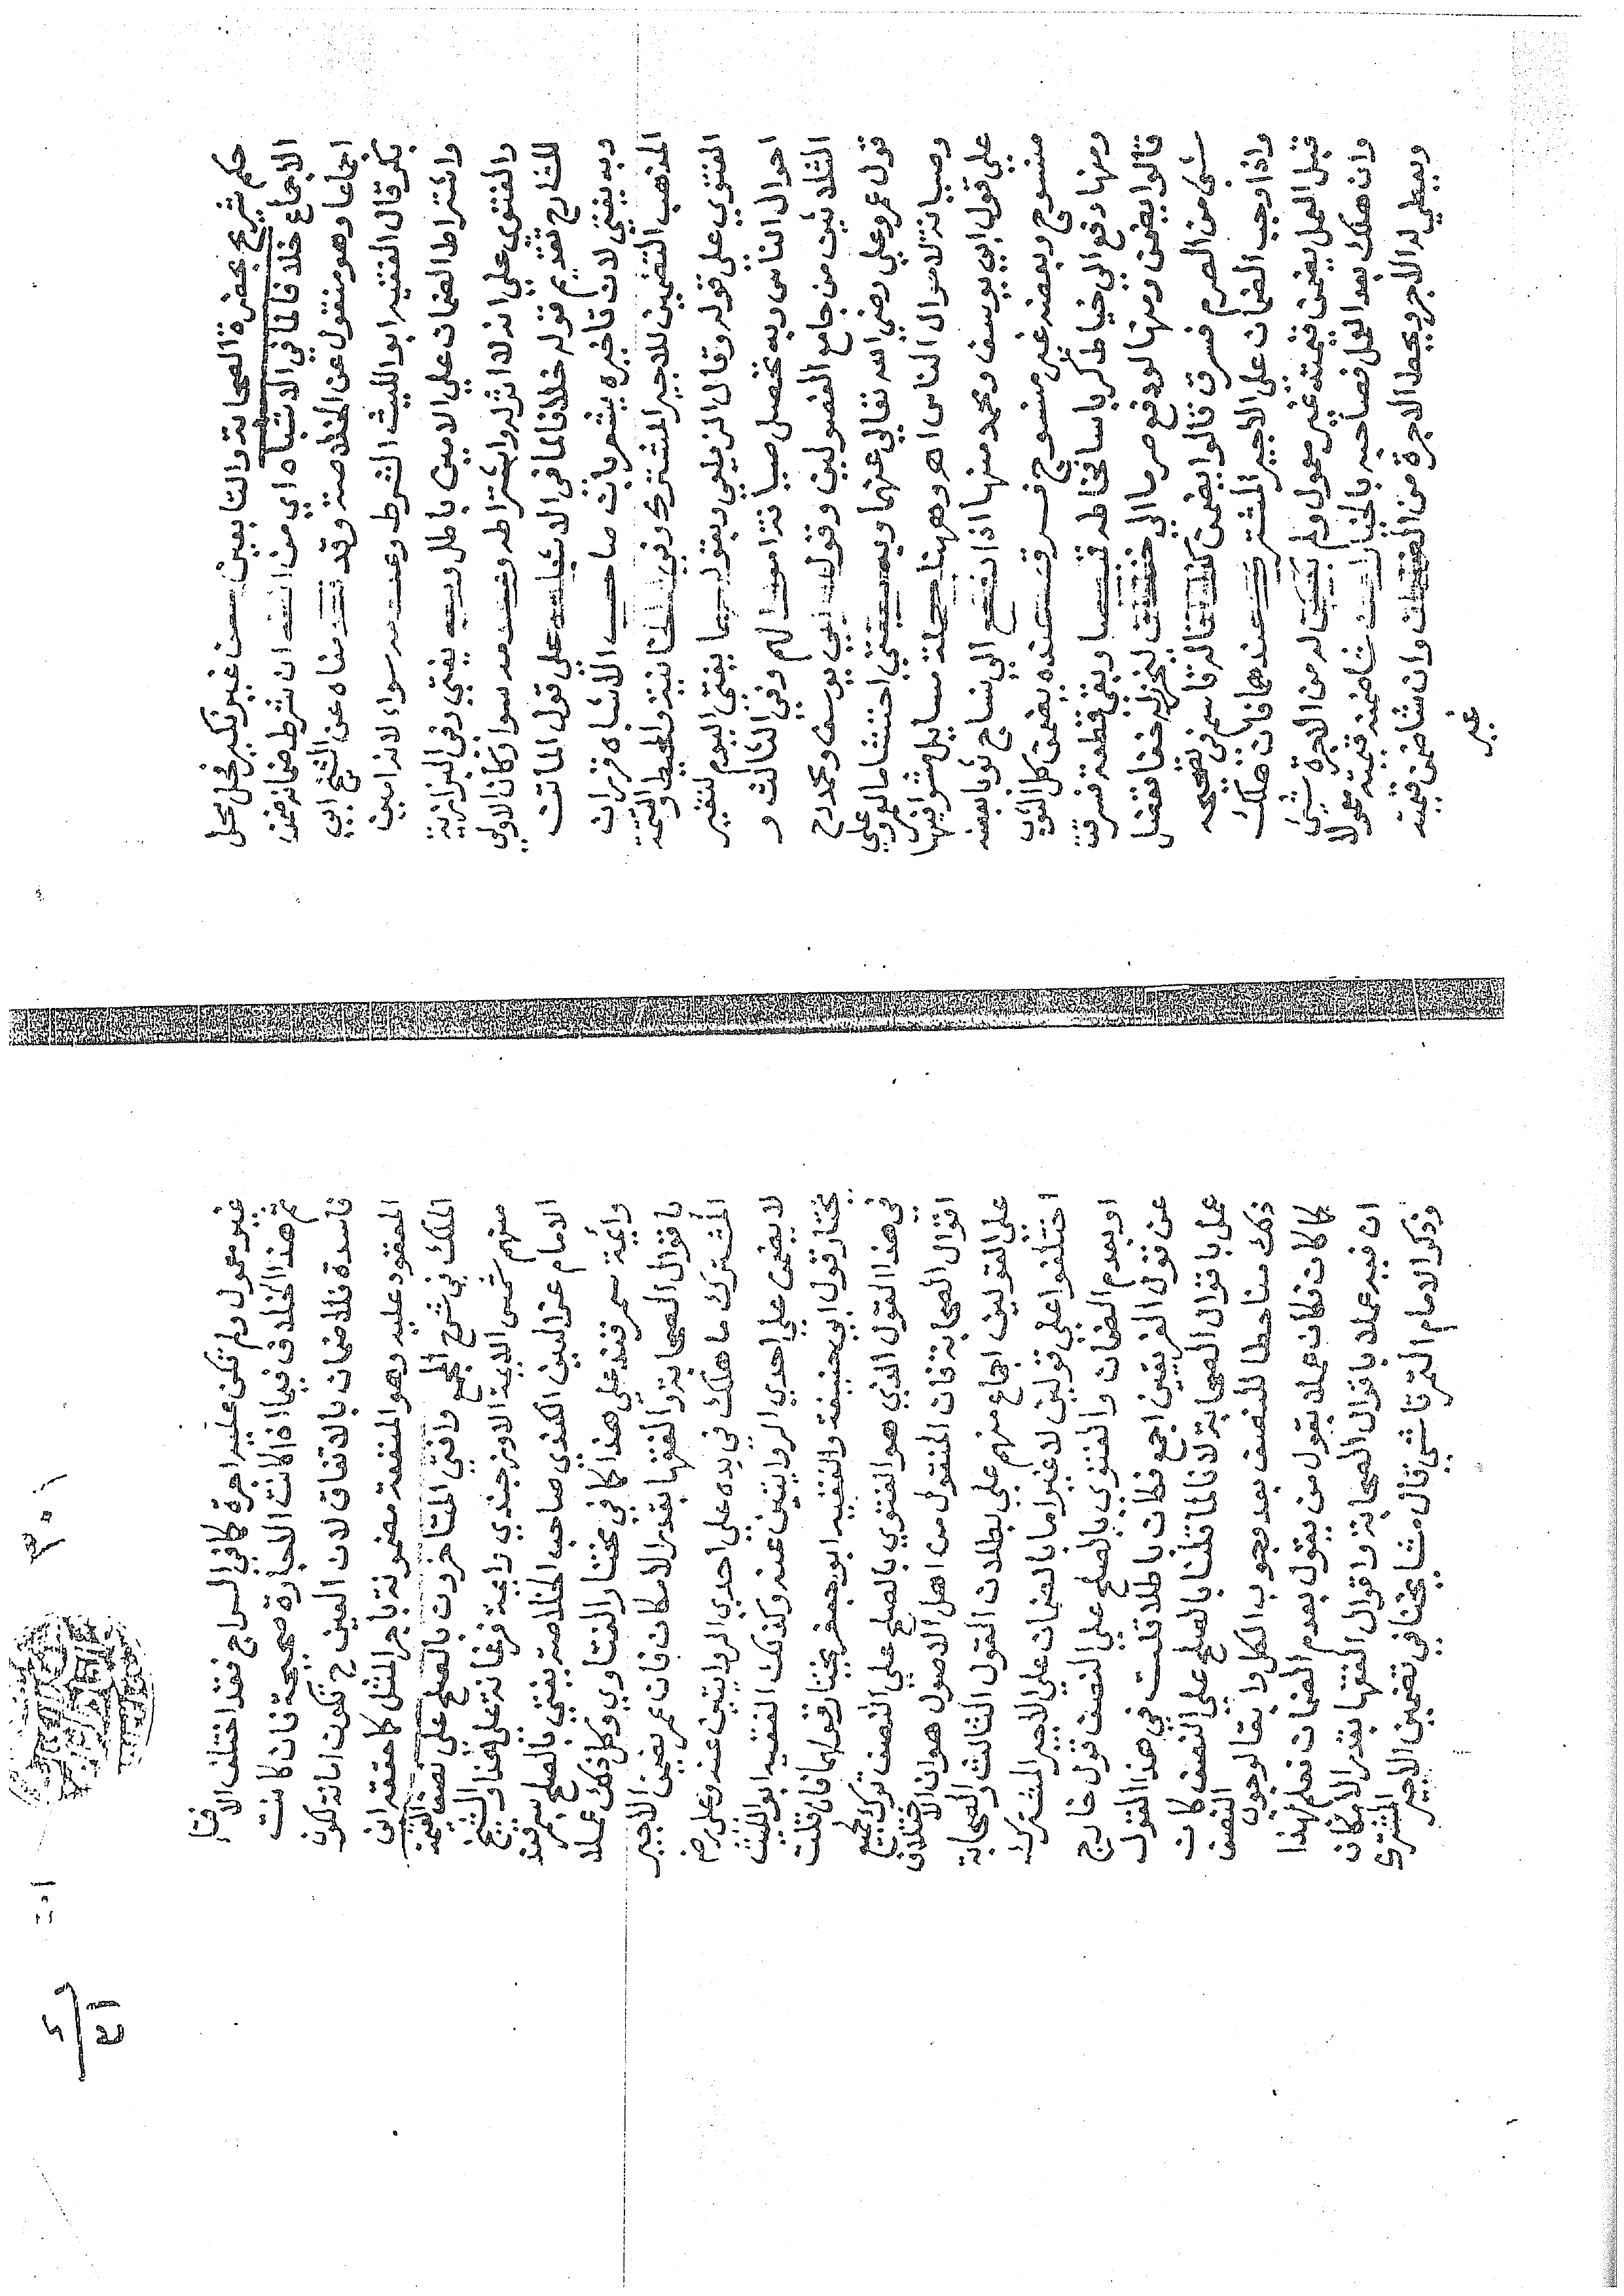 حكم شريح بحضرة الصحابة والتابعين من غير نكير فحل محل
الاجماع خلافا لما في الاشباه اي من انه ان شرط ضمانه ضمن
اجماعا وهو منقول عن الخلاصة وقد قدمناه عن الشيخ ابي
بكر قال الفقيه ابو الليث الشرط وعدمه سواء لانه امين
واشتراط الضمان علي الامين باطل وبه يفتي وفي البزازية
والفتوي علي انه لا اثر له واشتراطه وعدمه سوا وكان الاولي
للشارح تقديم قوله خلافا لما في الاشباه علي قول الماتن
وبه يفتي لان تاخيره يشعر بان صاحب الاشباه قرر ان
المذهب التضمين للاجير المشترك وفي الخانية والمحيط والتتمة
الفتوي علي قوله وقال الزيلعي وبقولهما يفتي اليوم لتغير
احوال الناس وبه تحصل صيانة اموالهم وفي الثالث و
الثلاثين من جامع الفصولين وقول ابي يوسف ومحمد رح
قول عمر وعلي رضي الله تعالي عنهما وبه يفتي احتشاما لعمر وعلي
وصيانة لاموال الناس اهـ وههنا جملة مسايل متوافقها
علي قول ابي يوسف ومحمد منها اذا دفع الي نساج ثوبا بعضه
منسوج وبعضه غير منسوج فسرق عنده يضمن كل الثوب
ومنها دفع الي خياط كرباسا فخاطه قميصا وبقي قطعة فسرقت
قالوا يضمن ومنها لو دفع صرما الي خفاف ليخرزه خفا ففضل
شئ من الصرم فسرق قالوا يضمن كذا قاله قاسم في تصحيحه
واذا وجب الضمان علي الاجير المشترك عندهما فان هلك
قبل العمل يضمن قيمته غير معمول ولم يكن له من الاجرة شئ
وان هلك بعد العمل فصاحبه بالخيار ان شا ضمنه قيمته معمولا
ويعطي له الاجر ويحط الاجرة من الضمان وان شا ضمن قيمته
غير
غير معمول ولم تكن عليه اجرة كما في السراج فقد اختلف الافتا
ثم هذا الخلاف فيما اذا كانت الاجارة صحيحة فان كانت
فاسدة فلا ضمان بالاتفاق لان العين ح تكون امانة لكون
المعقود عليه وهو المنفعة مضمونة باجر المثل كما حققه ابن
الملك في شرح المجمع وافتي المتاخرون بالصلح علي نصف القيمة
منهم شمس الايمة الاوزجندي وايمة فرغانة علي هذا والشيخ
الامام عز الدين الكندي صاحب الخلاصة يفتي بالصلح بسمرقند
وايمة سمرقند علي هذا كما في مختار الفتاوي وكل ذلك عملا
باقوال الصحابة والفقها بقدر الامكان فان عمر يضمن الاجير
المشترك ما هلك في يده علي احدي الروايتين عنه وعلي رض
لا يضمن علي احدي الروايتين عنه وكذلك الفقيه ابو الليث
يختار قول ابي حنيفة والفقيه ابو جعفر يختار قولهما فان قلت
في هذا القول الذي هو الفتوي بالصلح علي النصف ترك لجميع
اقوال الصحابة فان المنقول من اهل الاصول هو ان الاختلاف
علي القولين اجماع منهم علي بطلان القول الثالث والصحابة
اختلفوا علي قولين لا غير اما بالضمان علي الاجير المشترك
او بعدم الضمان والفتوي بالصلح علي النصف قول خارج
عن قول الفريقين اجمع فكان باطلا قلت في هذا القول
عمل باقوال الصحابة لانا لما قلنا بالصلح علي النصف كان
ذلك منا حطا للنصف بعد وجوب الكل وابقا لوجوب النصف
كما كان فكان عملا بقول من يقول بعدم الضمان فعلم بهذا
ان فيه عملا باقوال الصحابة واقوال الفقها بقدر الامكان
وذكر الامام التمرتاشي قال مشايخنا في تضمين الاجير المشترك